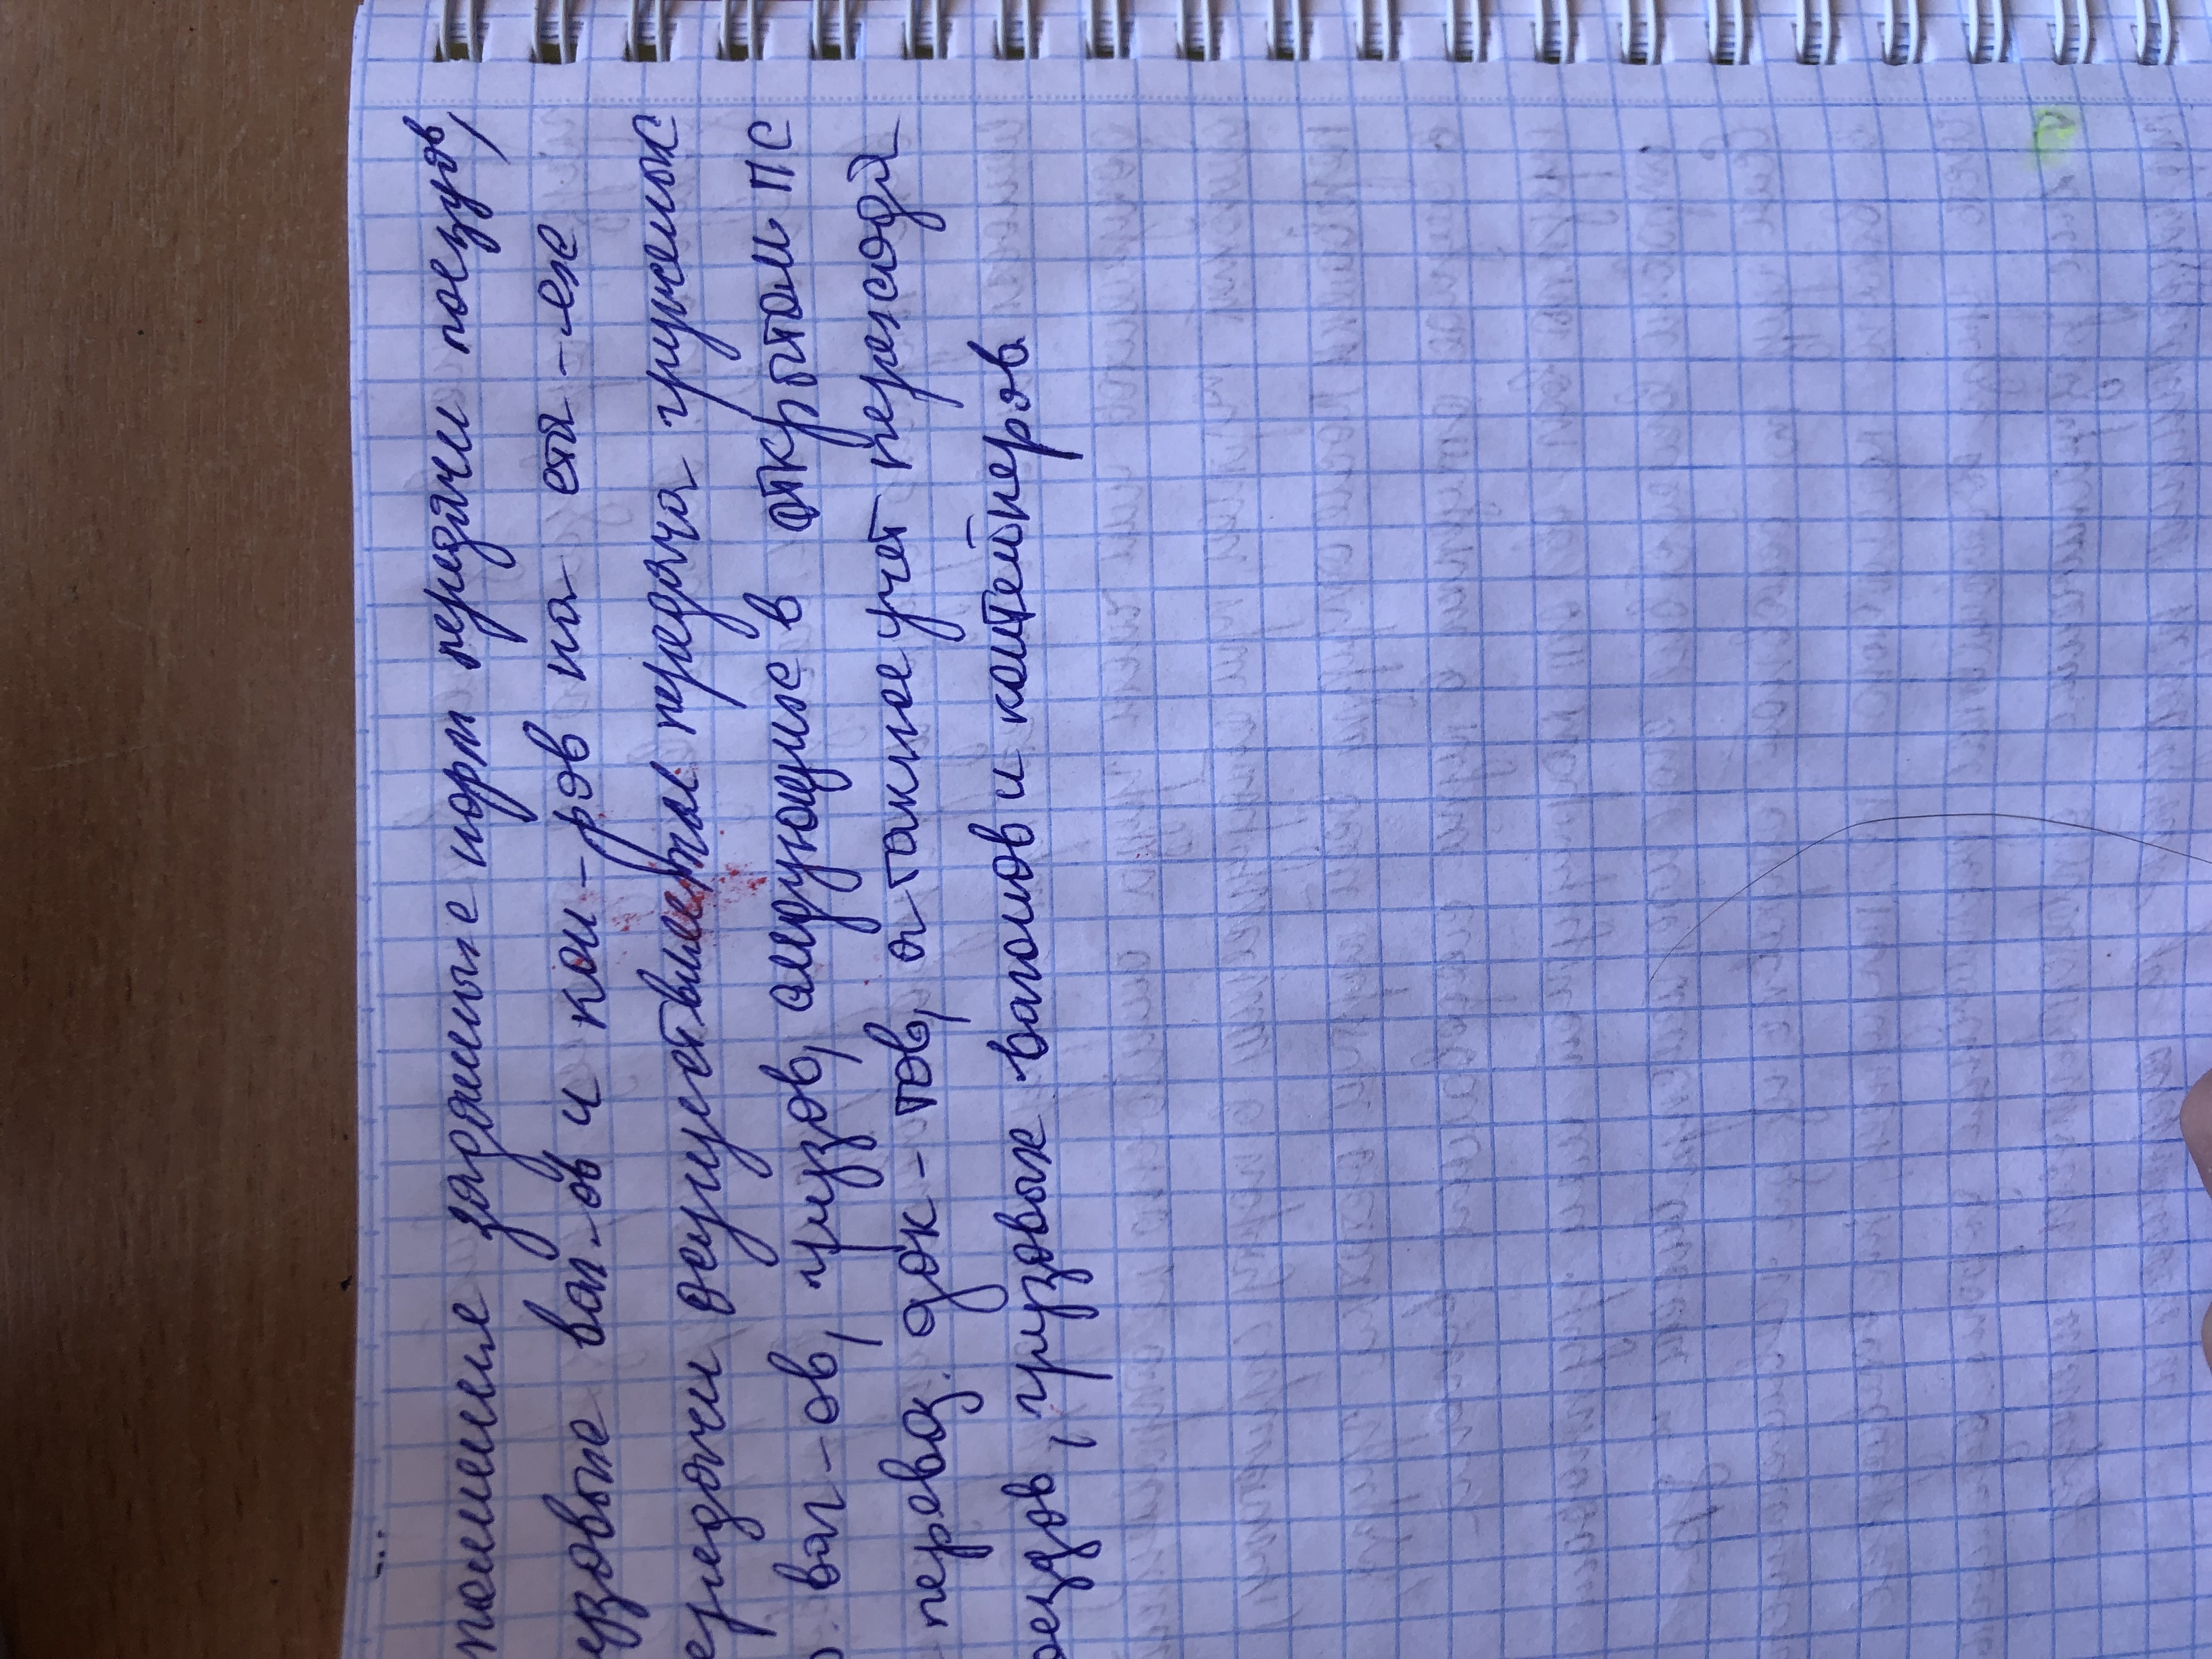 полнение заданные норм передачи поездов,
узовые ваг-ов и кон-ров на ст-ях
ередачи осуществляется передача груженых
ваг-ов, грузов, следующие в открытом ПС
перевоз. док-тов, а также учет перехода
оездов, грузовых вагонов и контейнеров